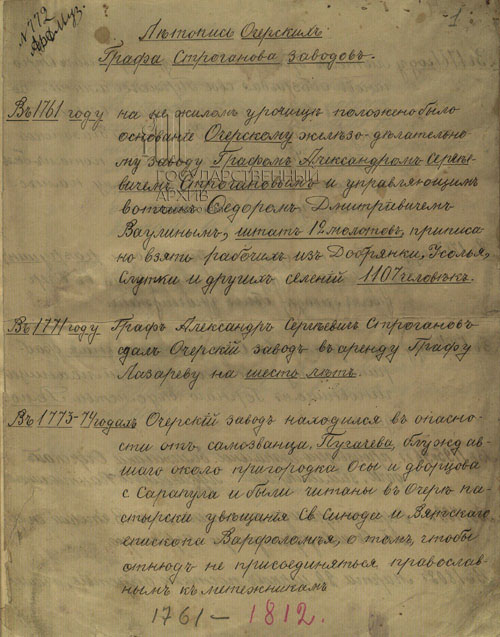 № 772
Арх Муз.
1
Лѣтопись Очерскихъ
Графа Строганова заводовъ.
Въ 1761 году на не жиломъ урочищѣ положено было
основаніе Очерскому желѣзо-дѣлательно
му заводу Графомъ Александромъ Сергѣ
евичемъ Строгановымъ и управляющимъ
вотчинъ Ѳедоромъ Дмитріевичемъ
Ваулинымъ, штатъ 12 молотовъ, приписа
но взять рабочихъ изъ Добрянки, Усолья,
Слутки и другихъ селеній 1107 человѣкъ.
ГОСУДАРСТВЕННЫЙ
АРХИВ
Въ 1771 году Графъ Александръ Сергѣевичъ Строгановъ
сдалъ Очерскій заводъ въ аренду Графу
Лазареву на шесть лѣтъ.
Въ 1773-74 годахъ Очерскій заводъ находился въ опасно
сти отъ самозванца, Пугачева, блуждав
шаго около пригородка Осы и дворцова
с Сарапула и были читаны въ Очерѣ па
стырски увѣщанія Св Синода и Вятскаго
епископа Варфоломѣя, о томъ, чтобы
отнюдъ не присоединяться православ
нымъ къ мятежникамъ
1761 – 1812.